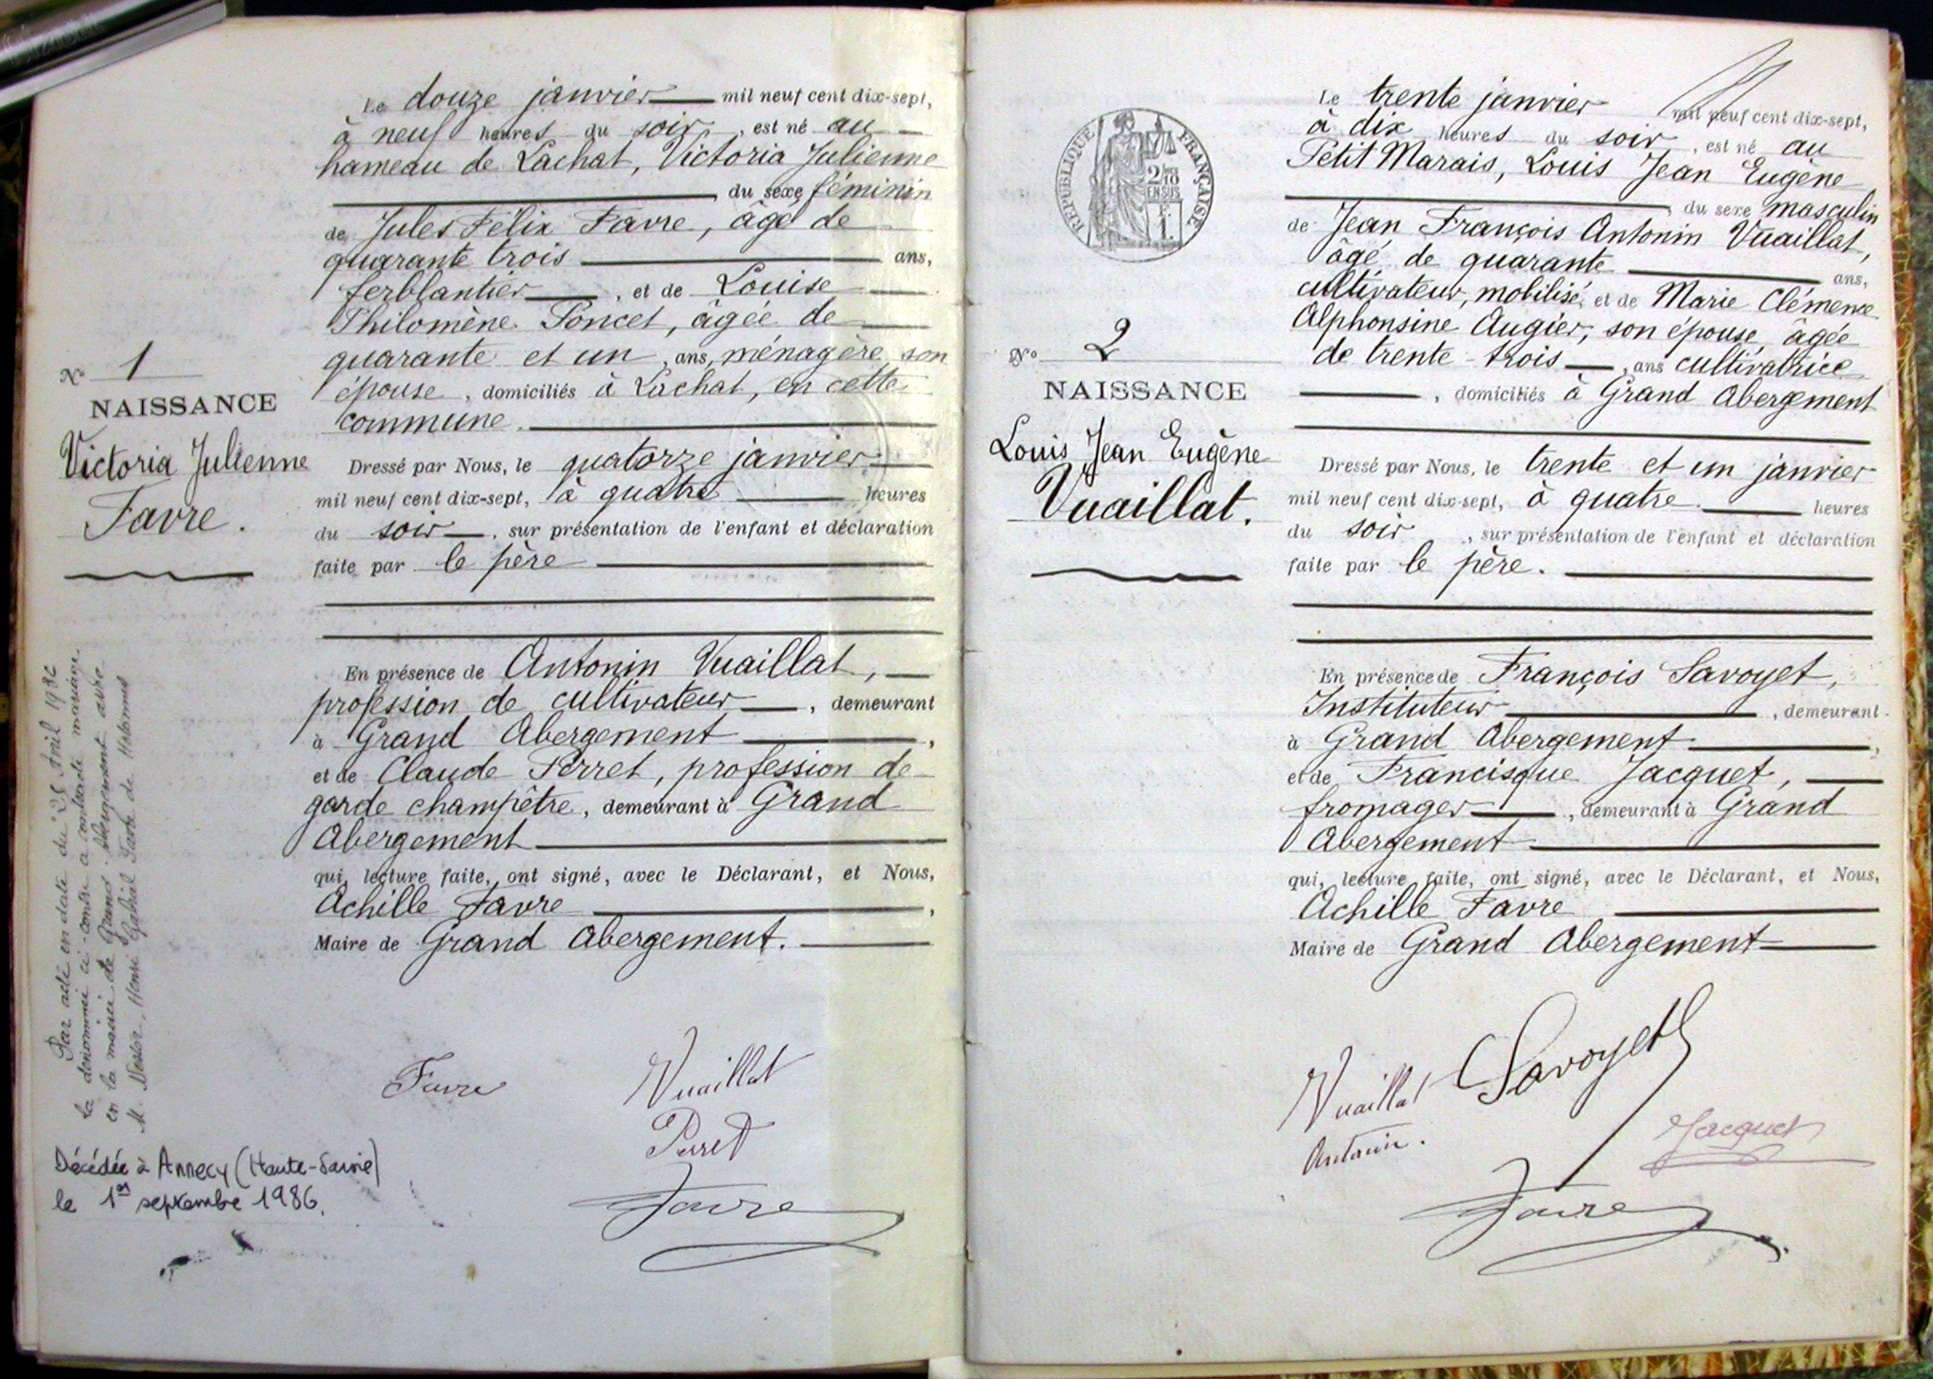 Le douze janvier mil neuf cent dix-sept,
à neuf heures du soir, est né au
hameau de Lachat, Victoria Julienne
, du sexe féminin
de Jules Félix Favre, âgé de
quarante trois ans,
ferblantier, et de Louise
Philomène Poncet, âgée de
quarante et un, ans, ménagère son
épouse, domiciliés à Lachat, en cette
commune.
N° 1
NAISSANCE
Victoria Julienne
Favre.
Dressé par Nous, le quatorze janvier
mil neuf cent dix-sept, à quatre heures
du soir, sur présentation de l'enfant et déclaration
faite par le père
En présence de Antonin Vuaillat,
profession de cultivateur, demeurant
à Grand Abergement,
et de Claude Perret, profession de
garde champêtre, demeurant à Grand
Abergement
qui, lecture faite, ont signé, avec le Déclarant, et Nous,
Achille Favre,
Maire de Grand Abergement.
Par acte en date du 25 Avril 19
la dénommée ci-contre a contracté mariage
en la mairie de Grand Abergement avec
M. Henri Gabriel
Décédée à Annecy (Haute-Savoie)
le 1er septembre 1986.
Favre
Vuaillat
Perret
Favre
RÉPUBLIQUE FRANÇAISE
Le trente janvier mil neuf cent dix-sept,
à dix heures du soir, est né au
Petit Marais, Louis Jean Eugène
, du sexe masculin
de Jean François Antonin Vuaillat,
âgé de quarante ans,
cultivateur, mobilisé, et de Marie Clémence
Alphonsine Augier, son épouse, âgée
de trente-trois, ans cultivatrice
, domiciliés à Grand Abergement
N° 2
NAISSANCE
Louis Jean Eugène
Vuaillat.
Dressé par Nous, le trente et un janvier
mil neuf cent dix-sept, à quatre heures
du soir, sur présentation de l'enfant et déclaration
faite par le père.
En présence de François Savoyet,
Instituteur, demeurant
à Grand Abergement,
et de Francisque Jacquet,
fromager, demeurant à Grand
Abergement
qui, lecture faite, ont signé, avec le Déclarant, et Nous,
Achille Favre
Maire de Grand Abergement
Vuaillat Savoyet
Antonin.
Jacquet
Favre